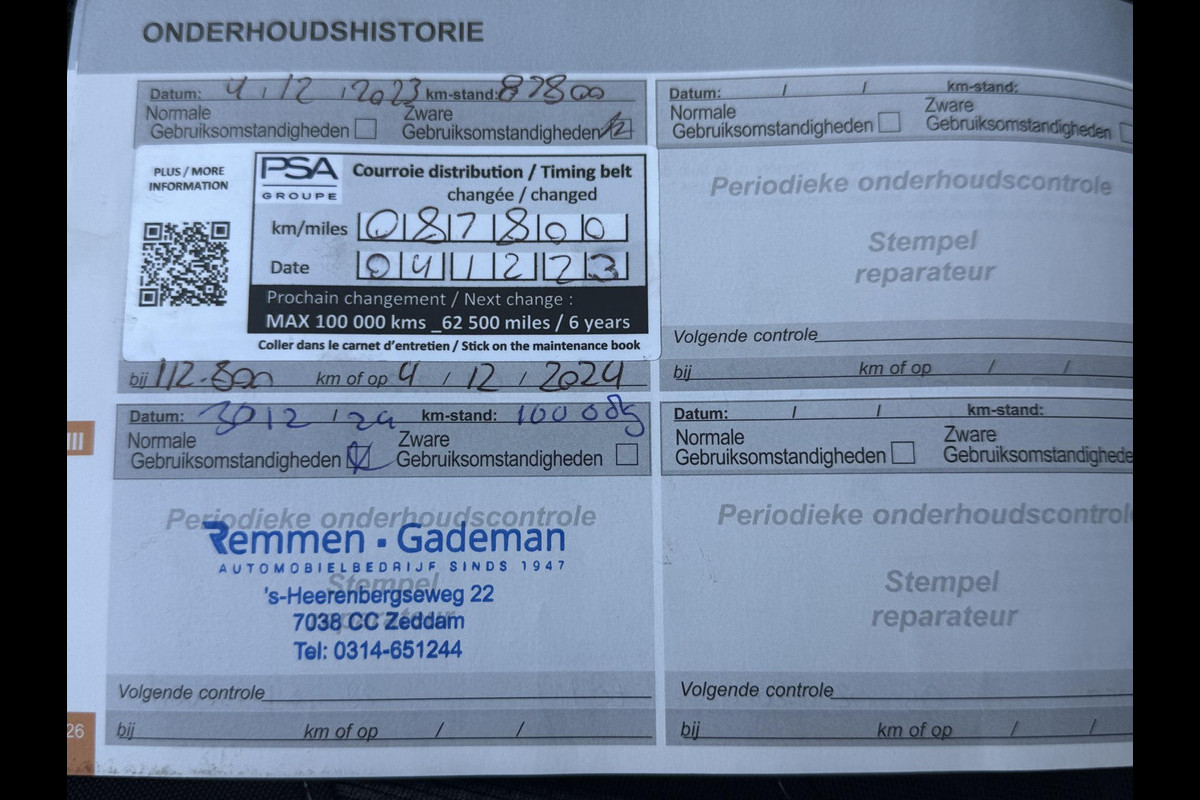 ONDERHOUDSHISTORIE
Datum: 4 / 12 / 2023 km-stand: 87800
Normale Gebruiksomstandigheden
Zware Gebruiksomstandigheden
PLUS / MORE
INFORMATION
PSA
GROUPE
Courroie distribution / Timing belt
changée / changed
km/miles 087800
Date 041223
Prochain changement / Next change :
MAX 100 000 kms _62 500 miles / 6 years
Coller dans le carnet d'entretien / Stick on the maintenance book
bij 112.800 km of op 4 / 12 / 2024
Datum: / / km-stand:
Normale Gebruiksomstandigheden
Zware Gebruiksomstandigheden
Periodieke onderhoudscontrole
Stempel
reparateur
Volgende controle
bij km of op / /
III
Datum: 30 12 / 24 km-stand: 100085
Normale Gebruiksomstandigheden
Zware Gebruiksomstandigheden
Periodieke onderhoudscontrole
Stempel
reparateur
Remmen · Gademan
AUTOMOBIELBEDRIJF SINDS 1947
's-Heerenbergseweg 22
7038 CC Zeddam
Tel: 0314-651244
Volgende controle
bij km of op / /
Datum: / / km-stand:
Normale Gebruiksomstandigheden
Zware Gebruiksomstandighede
Periodieke onderhoudscontrol
Stempel
reparateur
Volgende controle
bij km of op / /
26